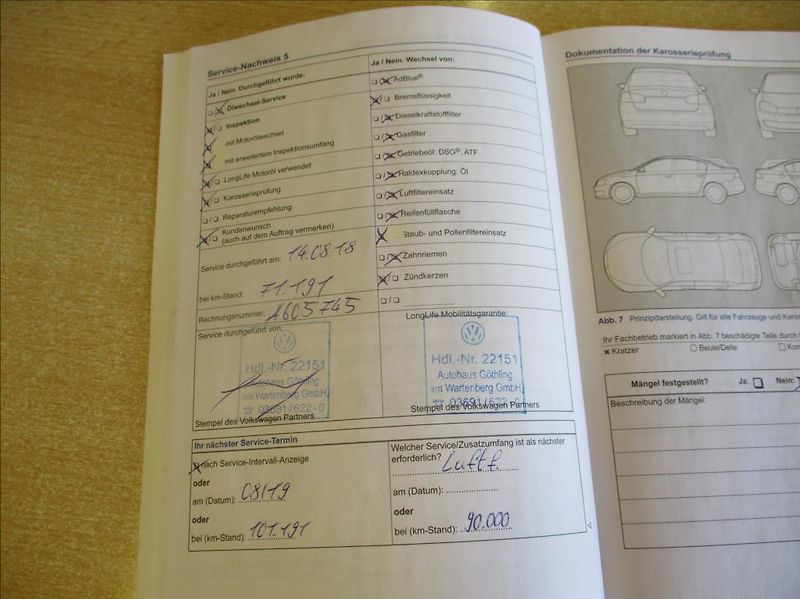 Service-Nachweis 5
Ja / Nein. Durchgeführt wurde:
Ölwechsel-Service
Inspektion
mit Motorölwechsel
mit erweitertem Inspektionsumfang
LongLife Motoröl verwendet
Karosserieprüfung
Reparaturempfehlung
Kundenwunsch
(auch auf dem Auftrag vermerken)
Service durchgeführt am: 14.08.18
bei km-Stand: 71.191
Rechnungsnummer: A605745
Service durchgeführt von:
Hdl.-Nr. 22151
Autohaus Göthling
am Wartenberg GmbH
☎ 03691/622-0
Stempel des Volkswagen Partners
Ja / Nein. Wechsel von:
AdBlue®
Bremsflüssigkeit
Dieselkraftstofffilter
Gasfilter
Getriebeöl: DSG®, ATF
Haldexkupplung: Öl
Luftfiltereinsatz
Reifenfüllflasche
Staub- und Pollenfiltereinsatz
Zahnriemen
Zündkerzen
LongLife Mobilitätsgarantie:
Hdl.-Nr. 22151
Autohaus Göthling
am Wartenberg GmbH
☎ 03691/622-0
Stempel des Volkswagen Partners
Ihr nächster Service-Termin
nach Service-Intervall-Anzeige
oder
am (Datum): 08/19
oder
bei (km-Stand): 101.191
Welcher Service/Zusatzumfang ist als nächster
erforderlich? Luftf.
am (Datum):
oder
bei (km-Stand): 90.000
Dokumentation der Karosserieprüfung
Abb. 7 Prinzipdarstellung. Gilt für alle Fahrzeuge und
Ihr Fachbetrieb markiert in Abb. 7 beschädigte Teile durch
Kratzer Beule/Delle
Mängel festgestellt? Ja: Nein:
Beschreibung der Mängel: